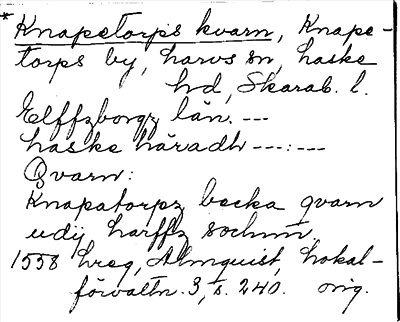 *Knapetorps kvarn, Knape-
torps by, Larvs sn, Laske
hd, Skarab. l.
Elffzborgz län. ---
Laske häradh ---:---
Qvarn:
Knapatorpz becka qvarn
udij Larffz sochnn,
1558 Lreg, Almquist, Lokal-
förvaltn. 3, s. 240. orig.